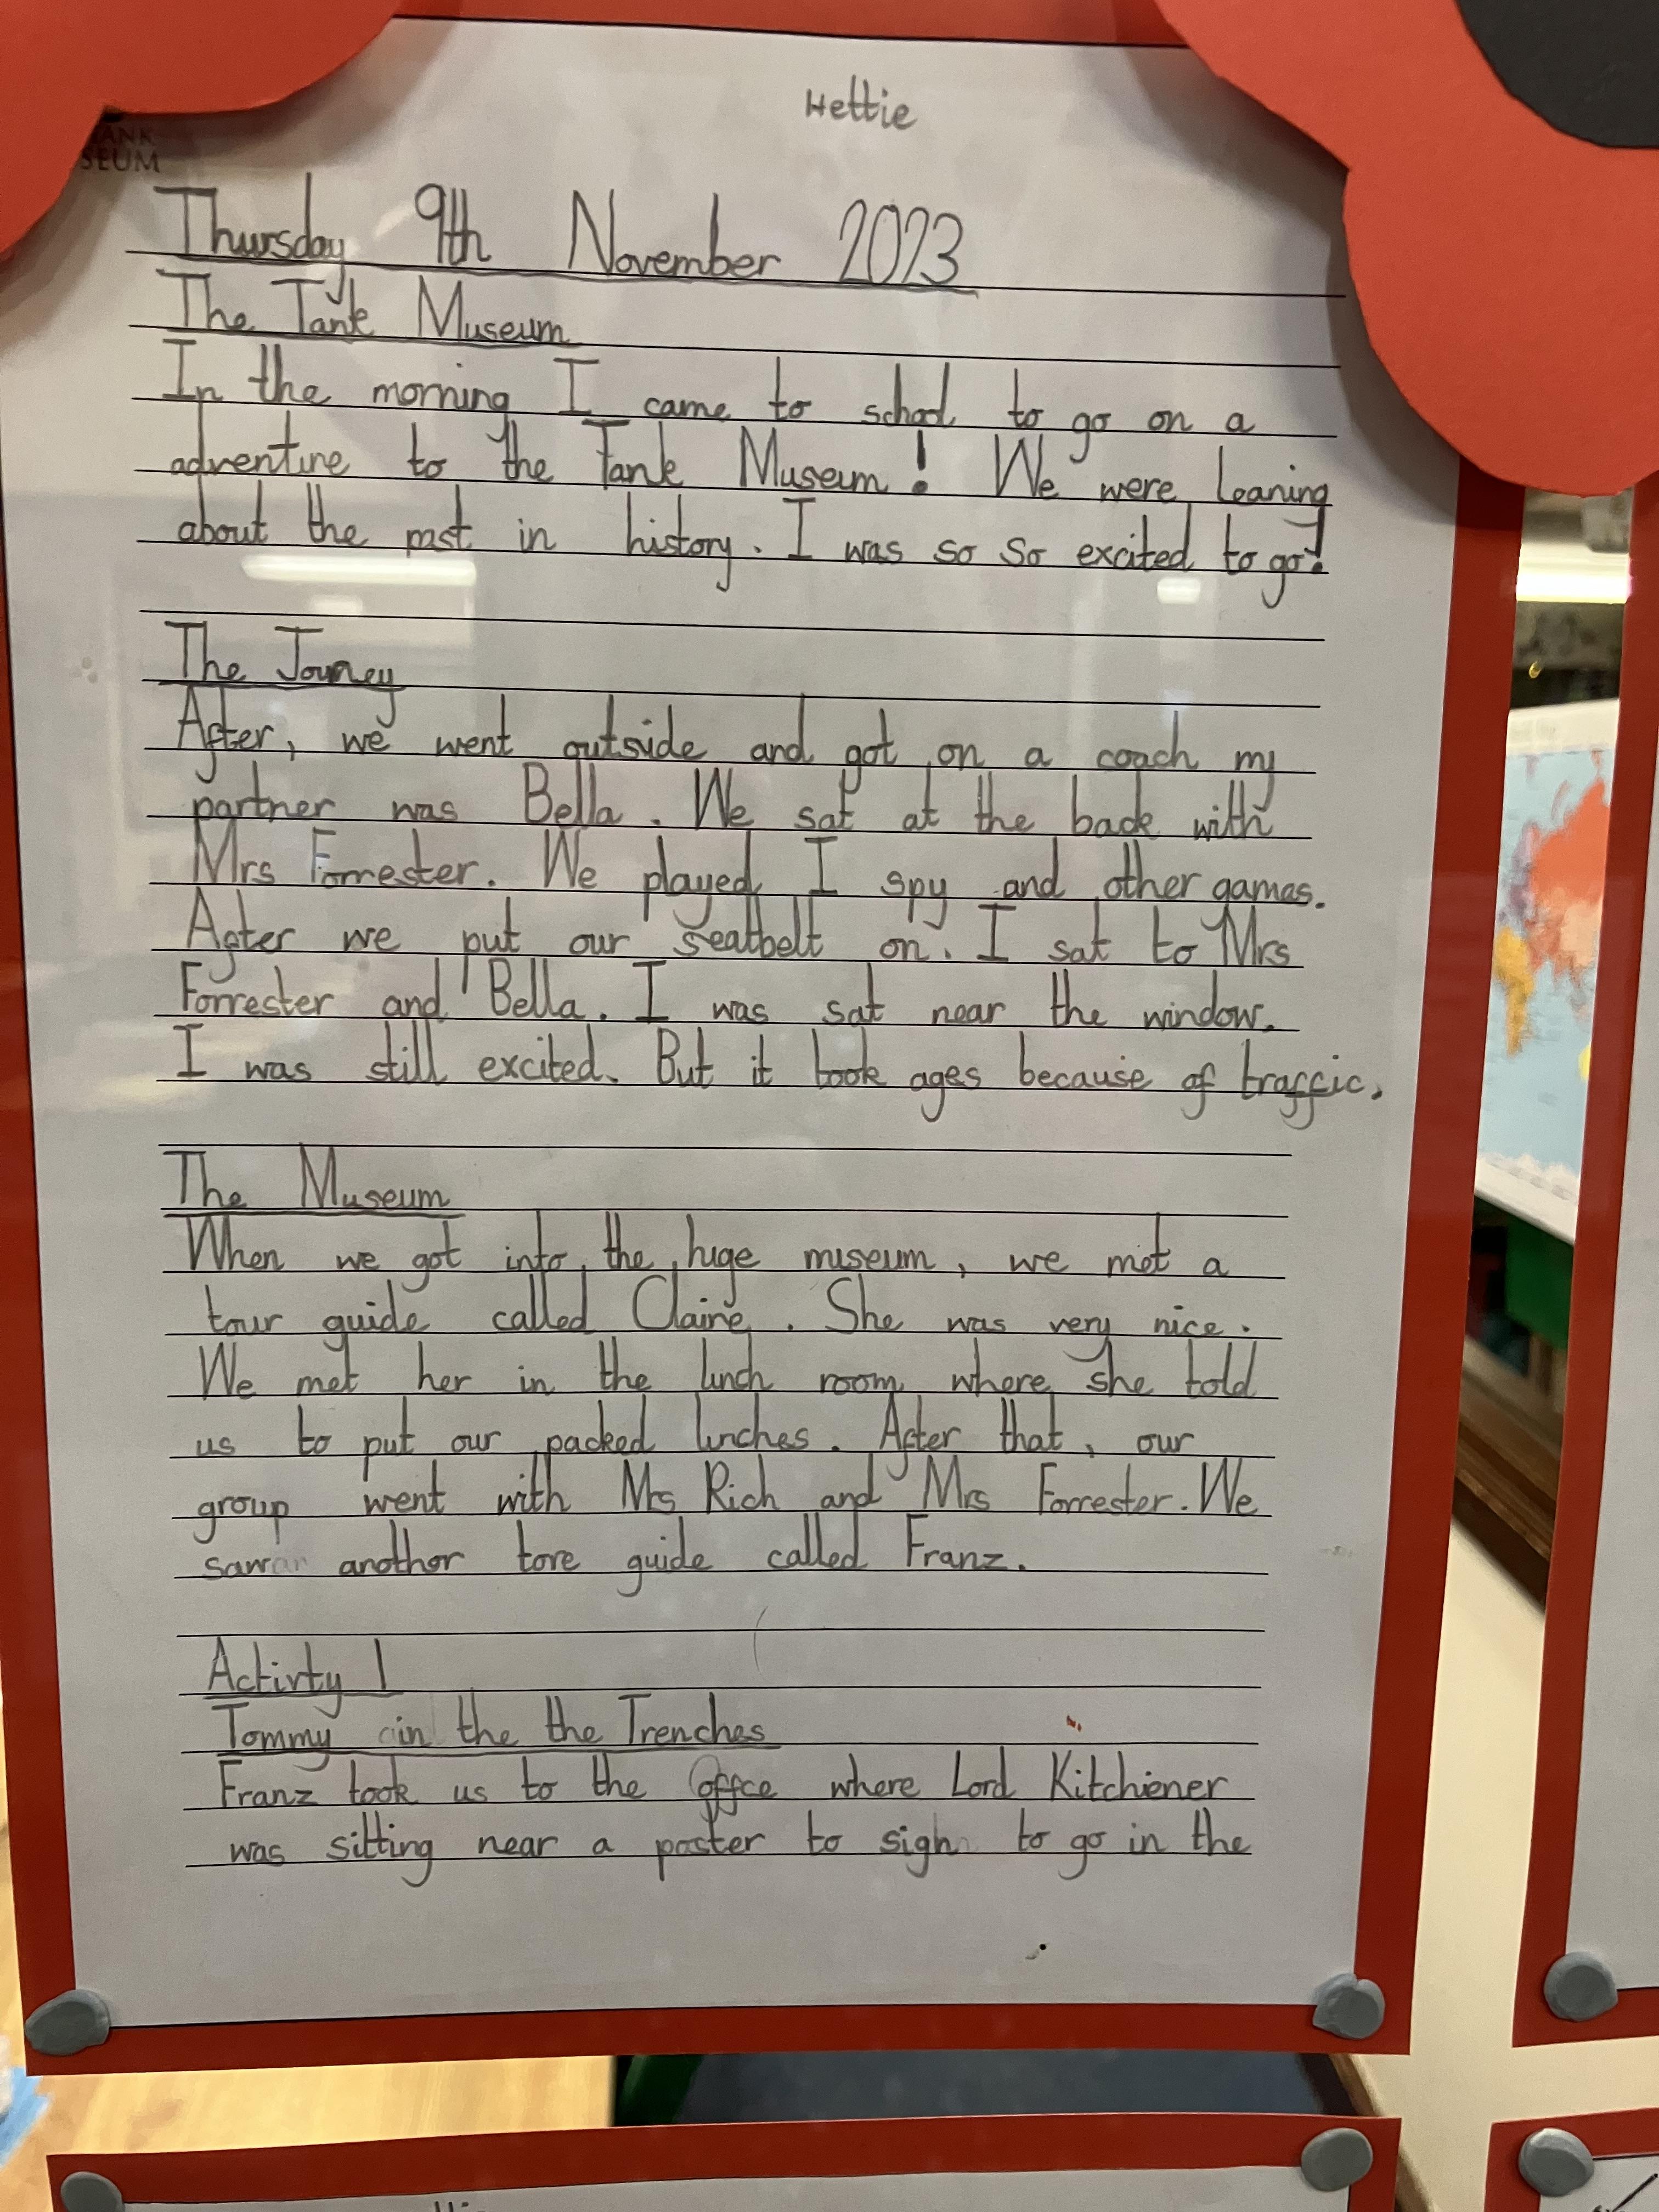 Hettie
TANK
SEUM
Thursday 9th November 2023
The Tank Museum
In the morning I came to school to go on a
adventure to the Tank Museum! We were leaning
about the past in history. I was so so excited to go!
The Jouney
After, we went outside and got on a coach my
partner was Bella. We sat at the back with
Mrs Forrester. We played I spy and other games.
After we put our seatbelt on. I sat to Mrs
Forrester and Bella. I was sat near the window.
I was still excited. But it took ages because of traffic.
The Museum
When we got into the huge museum, we met a
tour guide called Claire. She was very nice.
We met her in the lunch room where she told
us to put our packed lunches. After that, our
group went with Mrs Rich and Mrs Forrester. We
saw another tore guide called Franz.
Activty 1
Tommy in the the Trenches
Franz took us to the offce where Lord Kitchener
was sitting near a poster to sigh to go in the